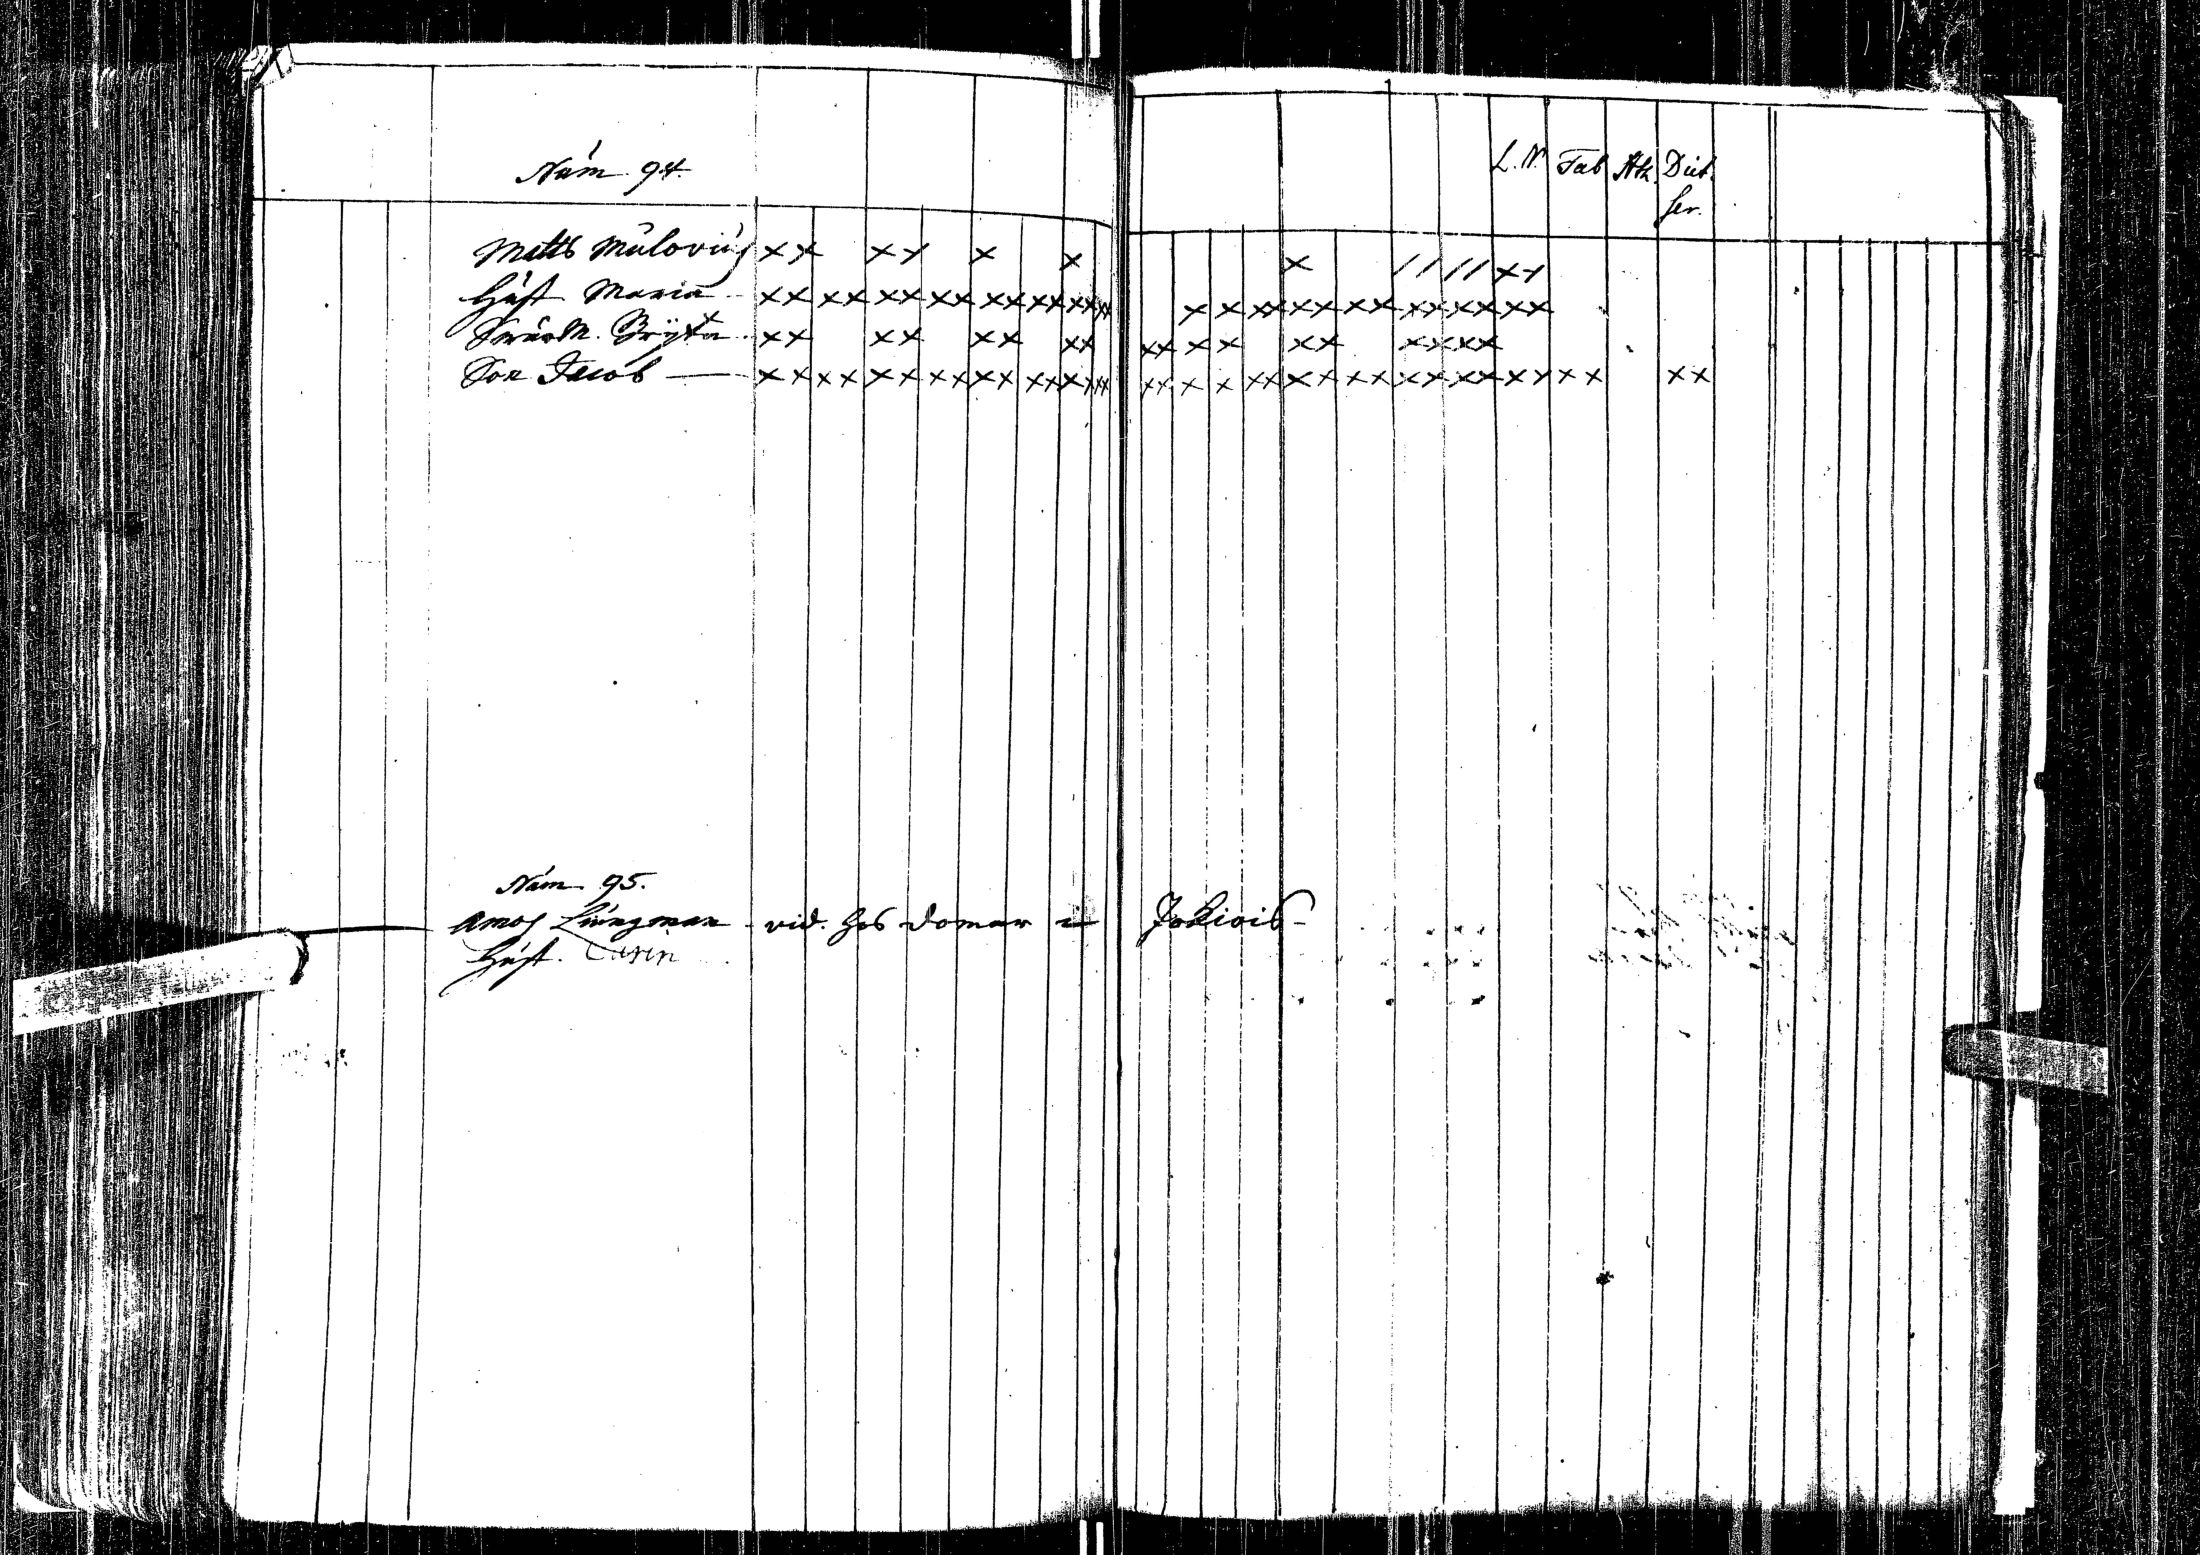 Num. 94.
L. N. Tab Ath. Diet. ser.
Matts Mulovius
Hust. Maria
Swärm. Bryta
Son Jacob
Num. 95.
Amos Liungman vid. hos domar i Jokiois
Hust. Carin